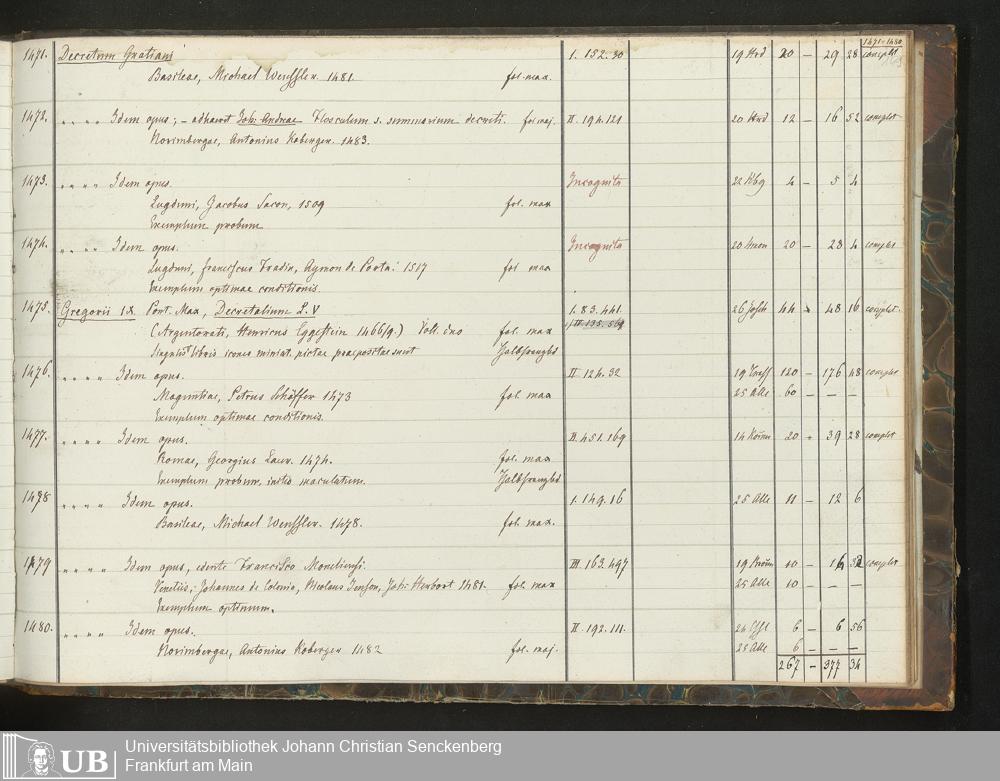 1471-1480
1471. Decretum Gratiani 1. 152. 30 19 Hrd 20 – 29 28 complet
Basileae, Michael Wenssler. 1481. fol. max.
1472. " " " " Idem opus; – adhaeret Joh: Andreae Flosculum s. summarium decreti. fol. maj. II. 194. 121 20 Hrd 12 – 16 52 complet
Norimbergae, Antonius Koberger. 1483.
1473. " " " " Idem opus. Incognita 22 Kbg 4 – 5 4
Lugduni, Jacobus Sacon, 1509 fol. max
Exemplum probum
1474. " " " Idem opus. Incognita 20 – 23 4 complet
Lugduni, franciscus Fradin, Aymon de Porta. 1517 fol max
Exemplum optimae conditionis.
1475. Gregorii IX. Pont. Max, Decretalium L. V 1. 83. 441. 26 Josch 44 – 48 16 complet
(Argentorati, Henricus Eggestein 1466/9.) Voll. duo fol. max III. 135. 569
Singulis libris icones miniat. pictae praepositae sunt Halbfranzbd
1476. " " " " Idem opus. II 124. 32 120 – 176 48 complet
Maguntiae, Petrus Schöffer 1473 fol. max 25 Alle 60 – – –
Exemplum optimae conditionis.
1477. " " " " Idem opus. II. 451. 169 20 – 39 28 complet
Romae, Georgius Laur. 1474. fol. max
Exemplum probum, initio maculatum. Halbfranzbd
1478 " " " " Idem opus. 1. 149. 16 25 Alle 11 – 12 6
Basileae, Michael Wenssler. 1478. fol. max.
1479 " " " " Idem opus, edente Francisco Moneliensi. III. 163. 497 10 – 16 32 complet
Venetiis, Johannes de Colonia, Nicolaus Jenson, Joh: Herbort 1481. fol. max 25 Alle 10 – – –
Exemplum optimum.
1480. " " " " Idem opus. II. 192. 111. 6 – 6 56
Norimbergae, Antonius Koberger 1482 fol. maj. 25 Alle 6 – – –
267 – 377 34
UB
Universitätsbibliothek Johann Christian Senckenberg
Frankfurt am Main